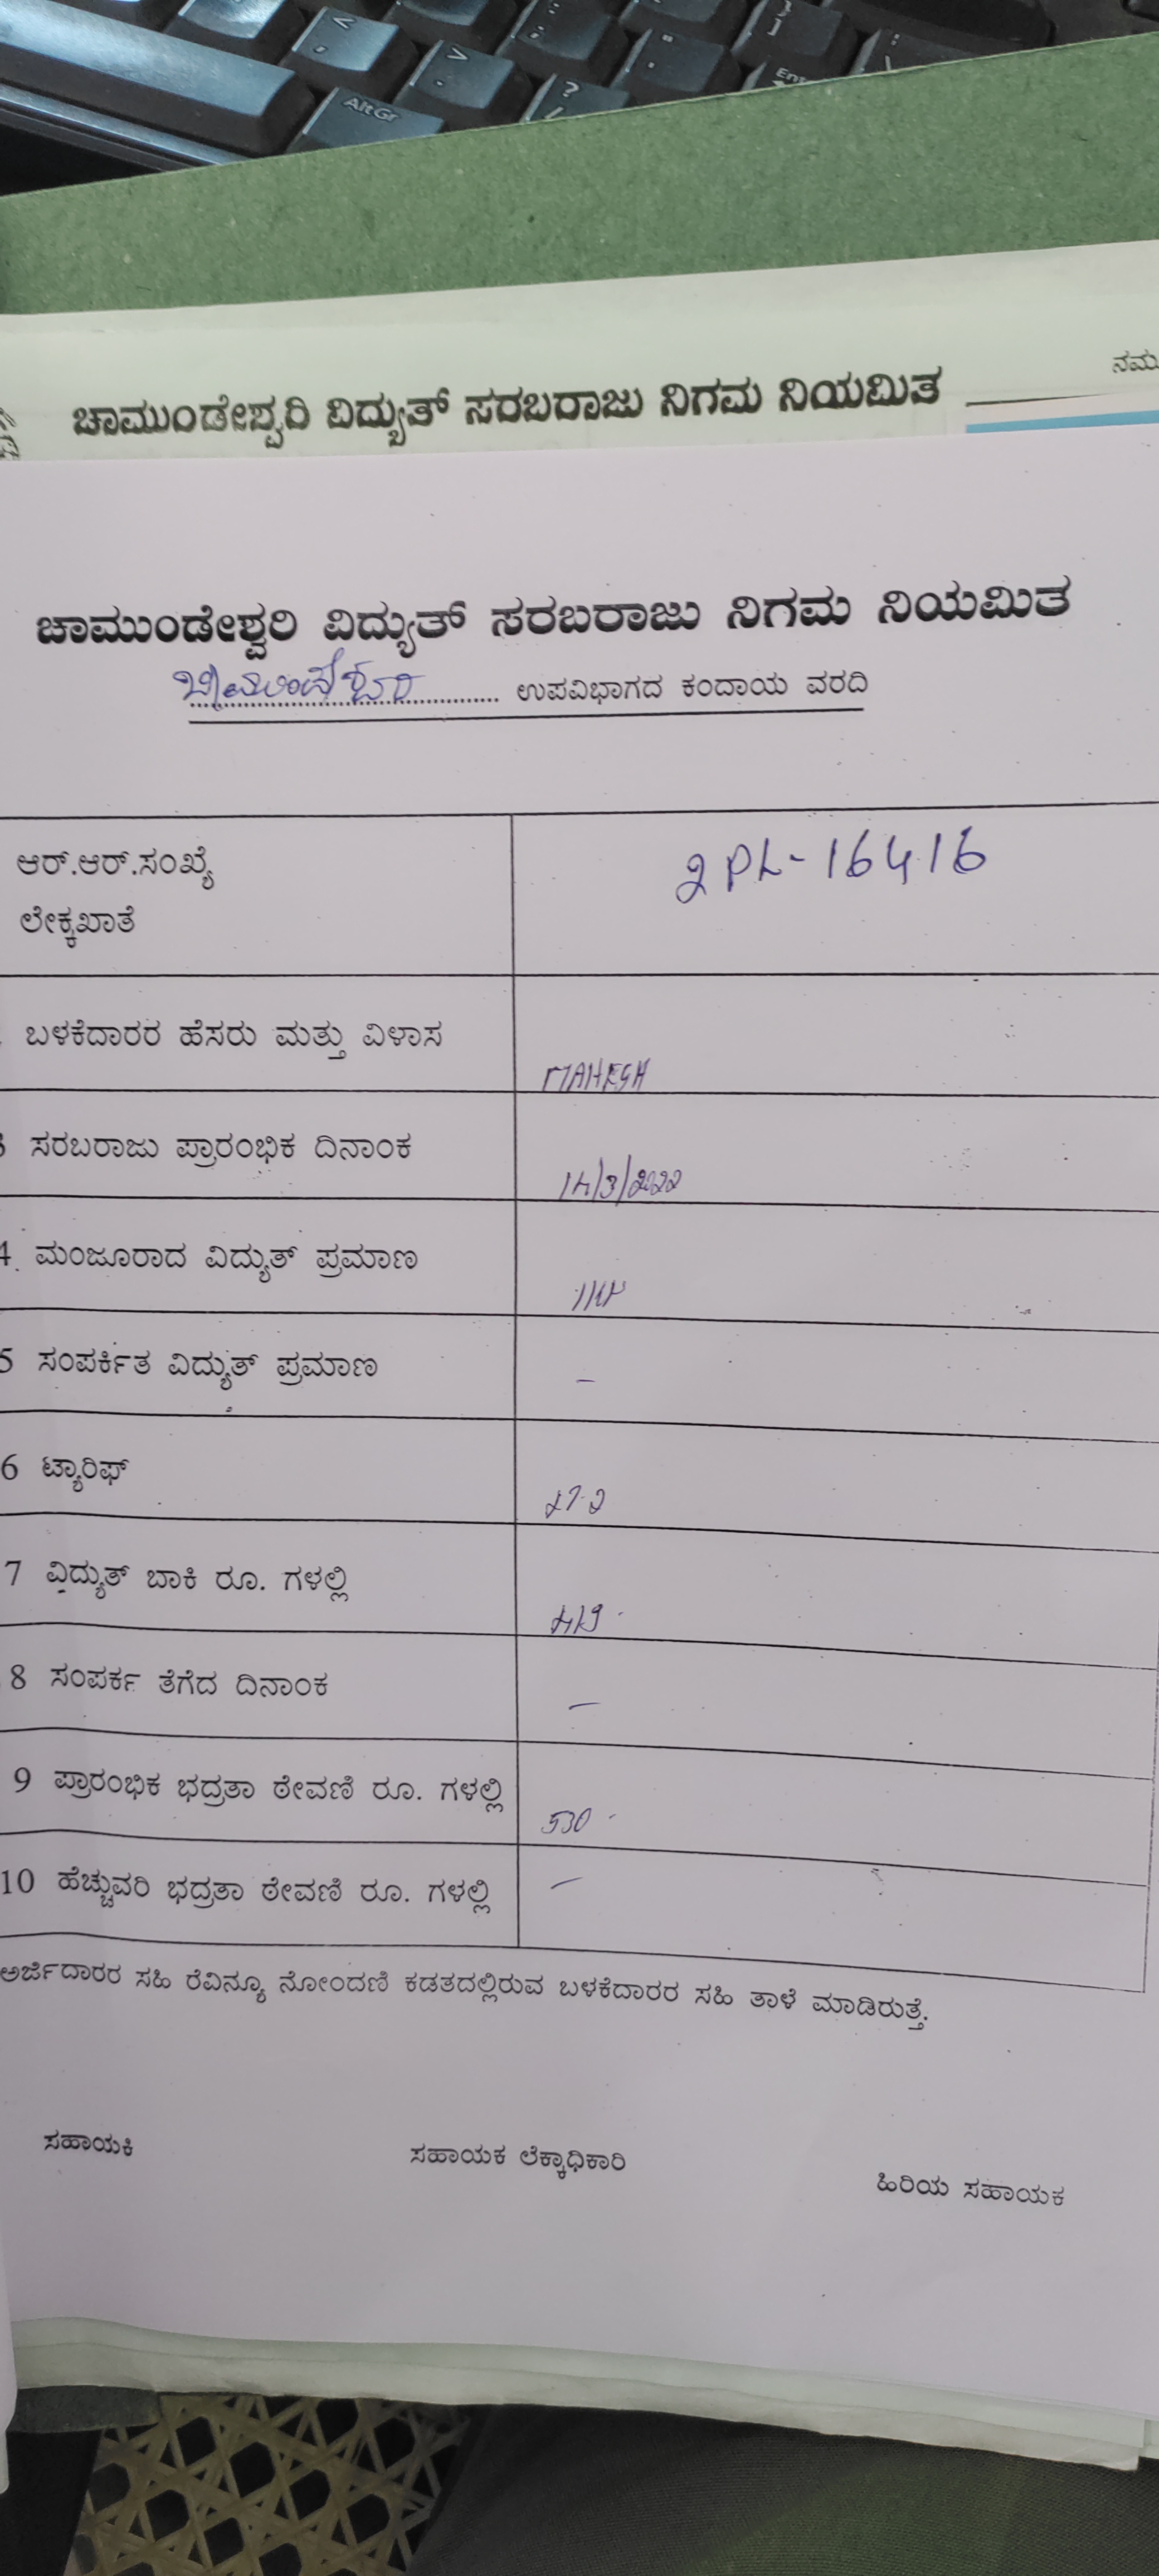 AltGr
?
/
Ent
ನಮ
ಚಾಮುಂಡೇಶ್ವರಿ ವಿದ್ಯುತ್ ಸರಬರಾಜು ನಿಗಮ ನಿಯಮಿತ
ಚಾಮುಂಡೇಶ್ವರಿ ವಿದ್ಯುತ್ ಸರಬರಾಜು ನಿಗಮ ನಿಯಮಿತ
ಉಪವಿಭಾಗದ ಕಂದಾಯ ವರದಿ
ಆರ್.ಆರ್.ಸಂಖ್ಯೆ 2PL-16416
ಲೇಕ್ಕಖಾತೆ
ಬಳಕೆದಾರರ ಹೆಸರು ಮತ್ತು ವಿಳಾಸ MAHESH
3 ಸರಬರಾಜು ಪ್ರಾರಂಭಿಕ ದಿನಾಂಕ
4. ಮಂಜೂರಾದ ವಿದ್ಯುತ್ ಪ್ರಮಾಣ
5 ಸಂಪರ್ಕಿತ ವಿದ್ಯುತ್ ಪ್ರಮಾಣ -
6 ಟ್ಯಾರಿಫ್
7 ವಿದ್ಯುತ್ ಬಾಕಿ ರೂ. ಗಳಲ್ಲಿ
8 ಸಂಪರ್ಕ ತೆಗೆದ ದಿನಾಂಕ -
9 ಪ್ರಾರಂಭಿಕ ಭದ್ರತಾ ಠೇವಣಿ ರೂ. ಗಳಲ್ಲಿ 530
10 ಹೆಚ್ಚುವರಿ ಭದ್ರತಾ ಠೇವಣಿ ರೂ. ಗಳಲ್ಲಿ -
ಅರ್ಜಿದಾರರ ಸಹಿ ರೆವಿನ್ಯೂ ನೋಂದಣಿ ಕಡತದಲ್ಲಿರುವ ಬಳಕೆದಾರರ ಸಹಿ ತಾಳೆ ಮಾಡಿರುತ್ತೆ.
ಸಹಾಯಕಿ ಸಹಾಯಕ ಲೆಕ್ಕಾಧಿಕಾರಿ ಹಿರಿಯ ಸಹಾಯಕ